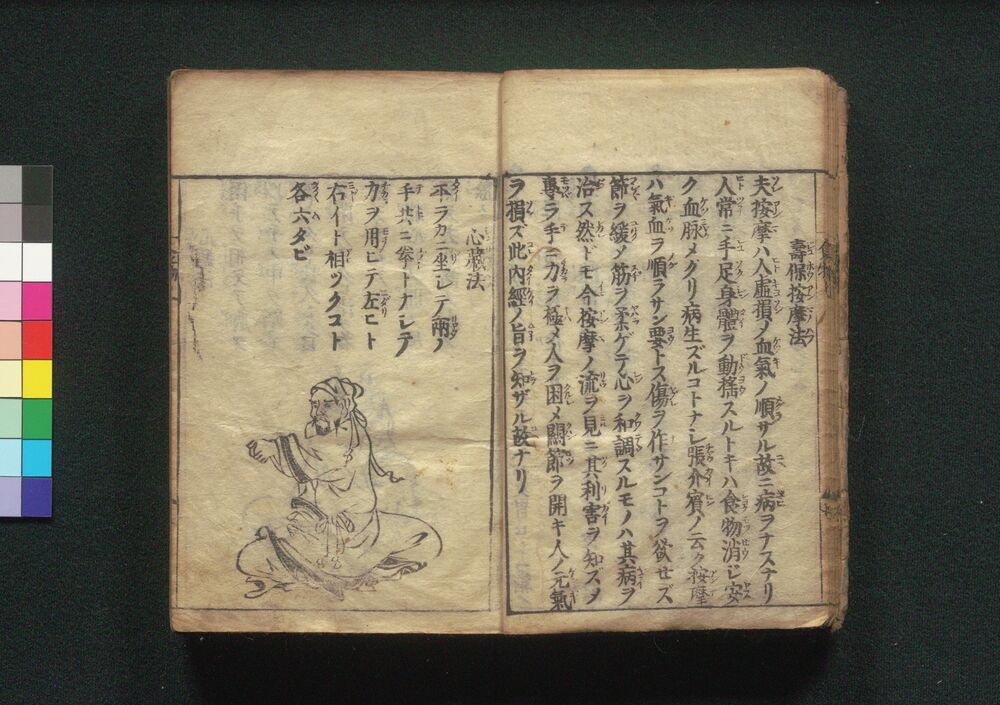 壽保按摩法
夫按摩ハ人虚損ノ血氣ノ順サル故ニ病ヲナスナリ
人常ニ手足身體ヲ動搖スルトキハ食物消シ安
ク血脉メクリ病生ズルコトナシ張介賓ノ云ク按摩
ハ氣血ヲ順ラサン要トス傷ヲ作サンコトヲ欲せズ
節ヲ緩メ筋ヲ柔ゲテ心ヲ和調スルモノハ其病ヲ
治ス然ドモ今按摩ノ流ヲ見ニ其利害ヲ知ズメ
專ラ手ニ力ヲ極メ人ヲ困メ關節ヲ開キ人ノ元氣
ヲ損ズ此内經ノ旨ヲ知ザル故ナリ
心藏法
平ラカニ坐シテ兩ノ
手共ニ拳トナシテ
力ヲ用ヒテ左ヒト
右イト相ツクコト
各六タビ